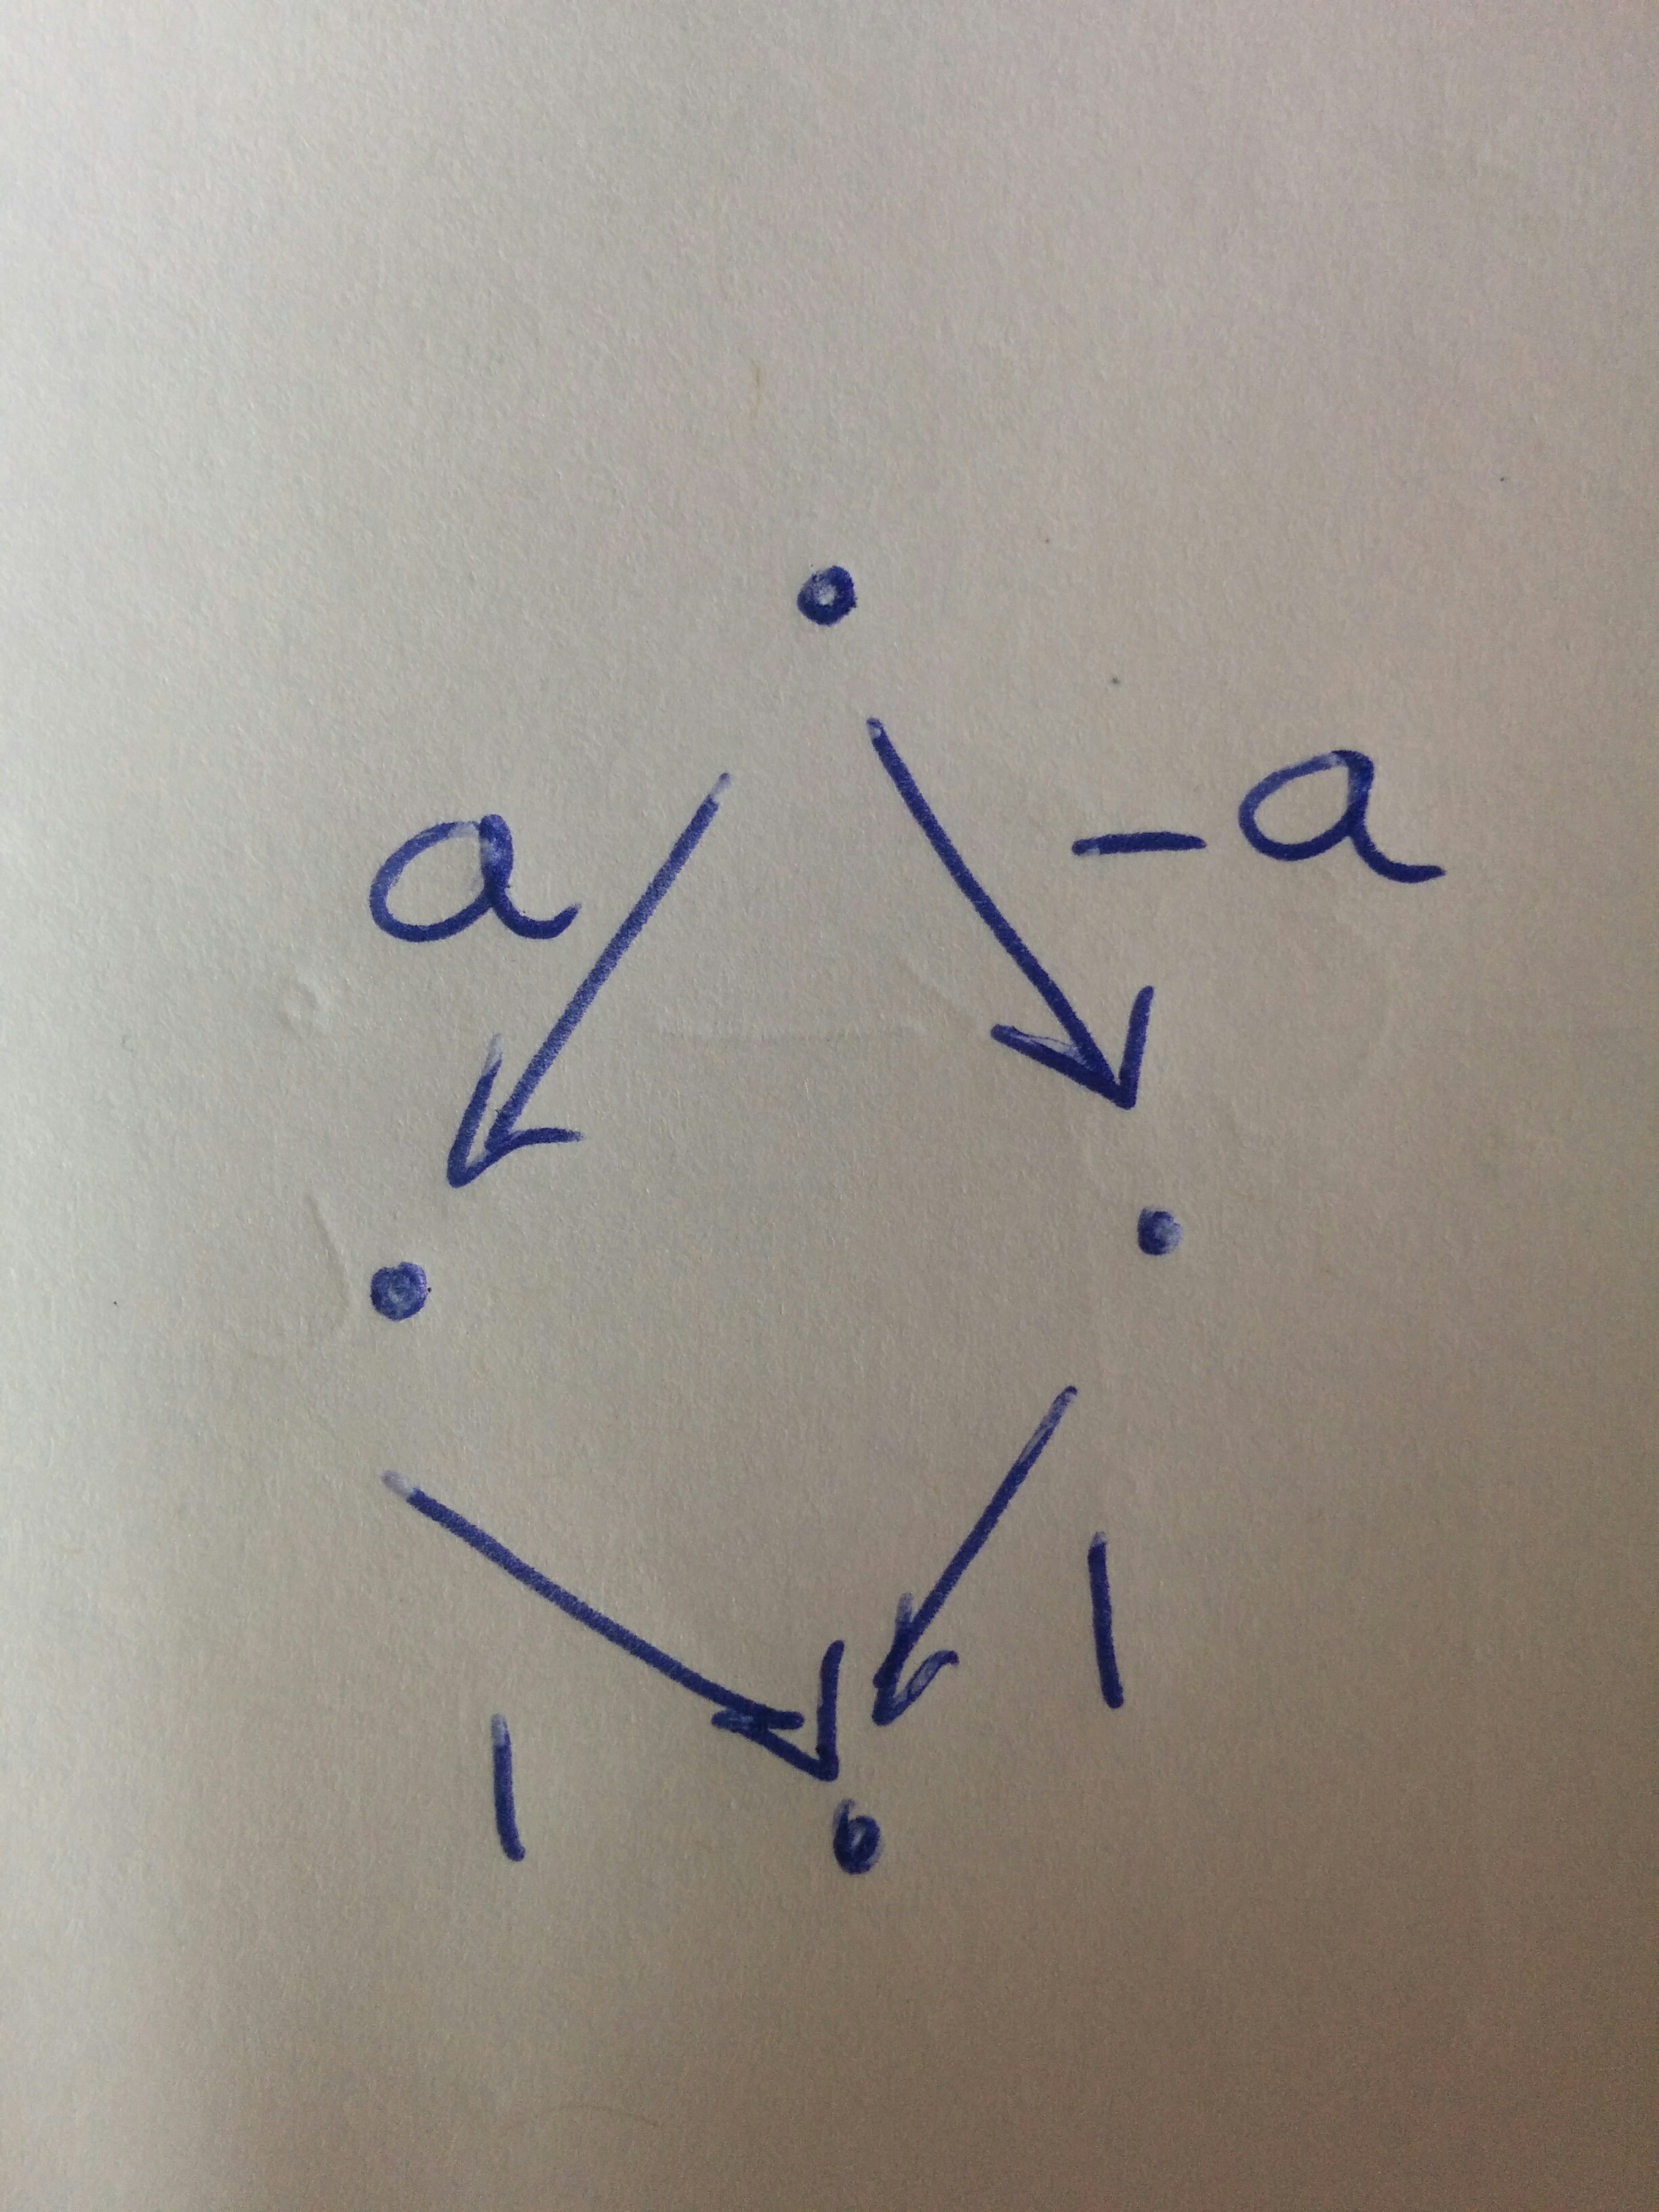 a
-a
1
1